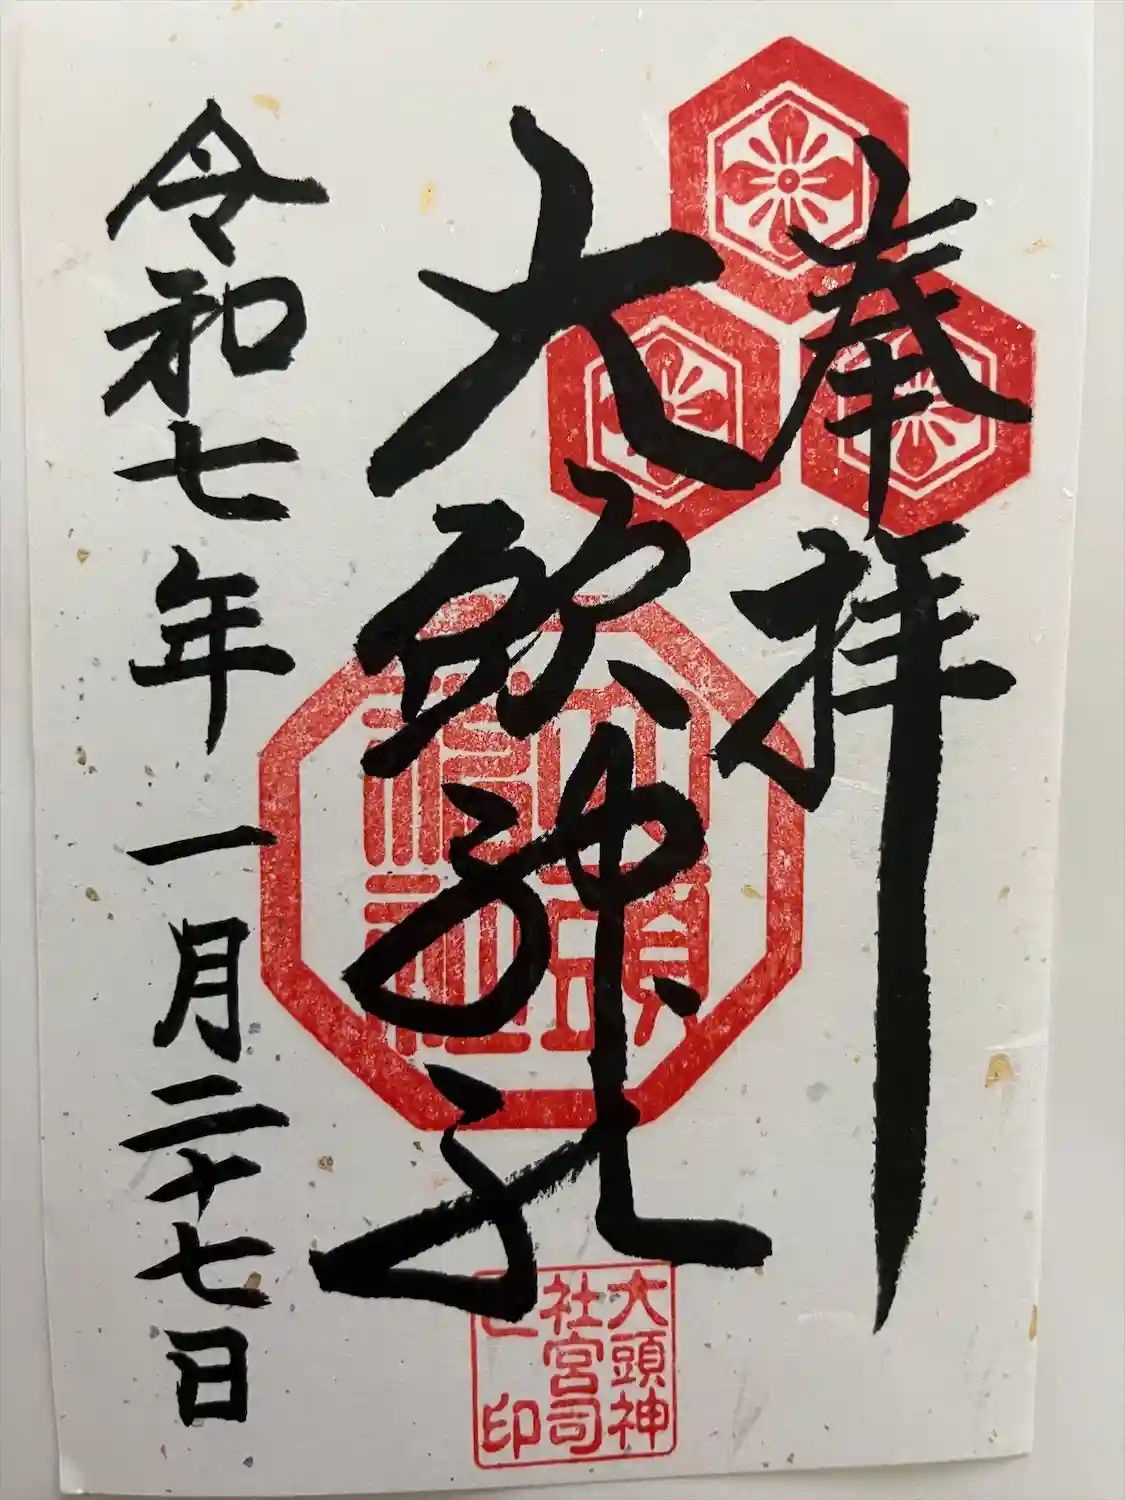 奉拝
大頭神社
令和七年一月二十七日
大頭
神社
大頭神
社宮司
之印